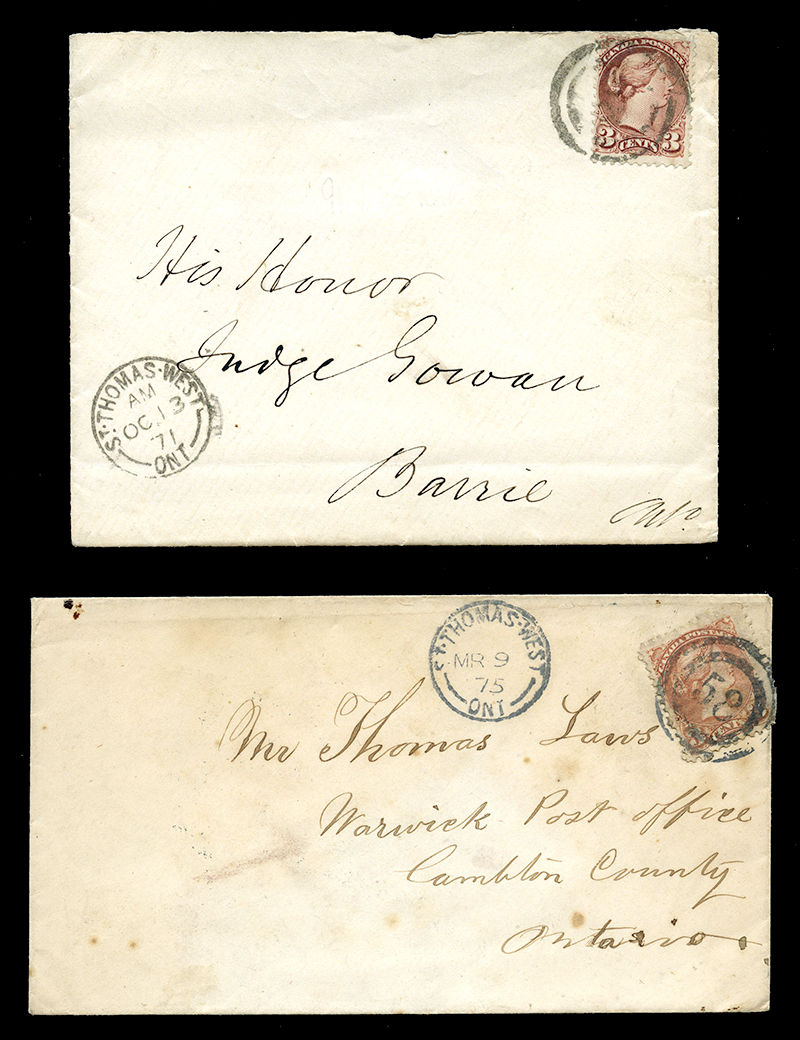 CANADA POSTAGE
3 CENTS 3
His Honor
Judge Gowan
Barrie
ST. THOMAS·WEST
AM
OC 13
71
ONT
ST. THOMAS·WEST
MR 9
75
ONT
CANADA POSTAGE
58
CENTS
Mr Thomas Laws
Warwick Post office
Lambton County
Ontario.